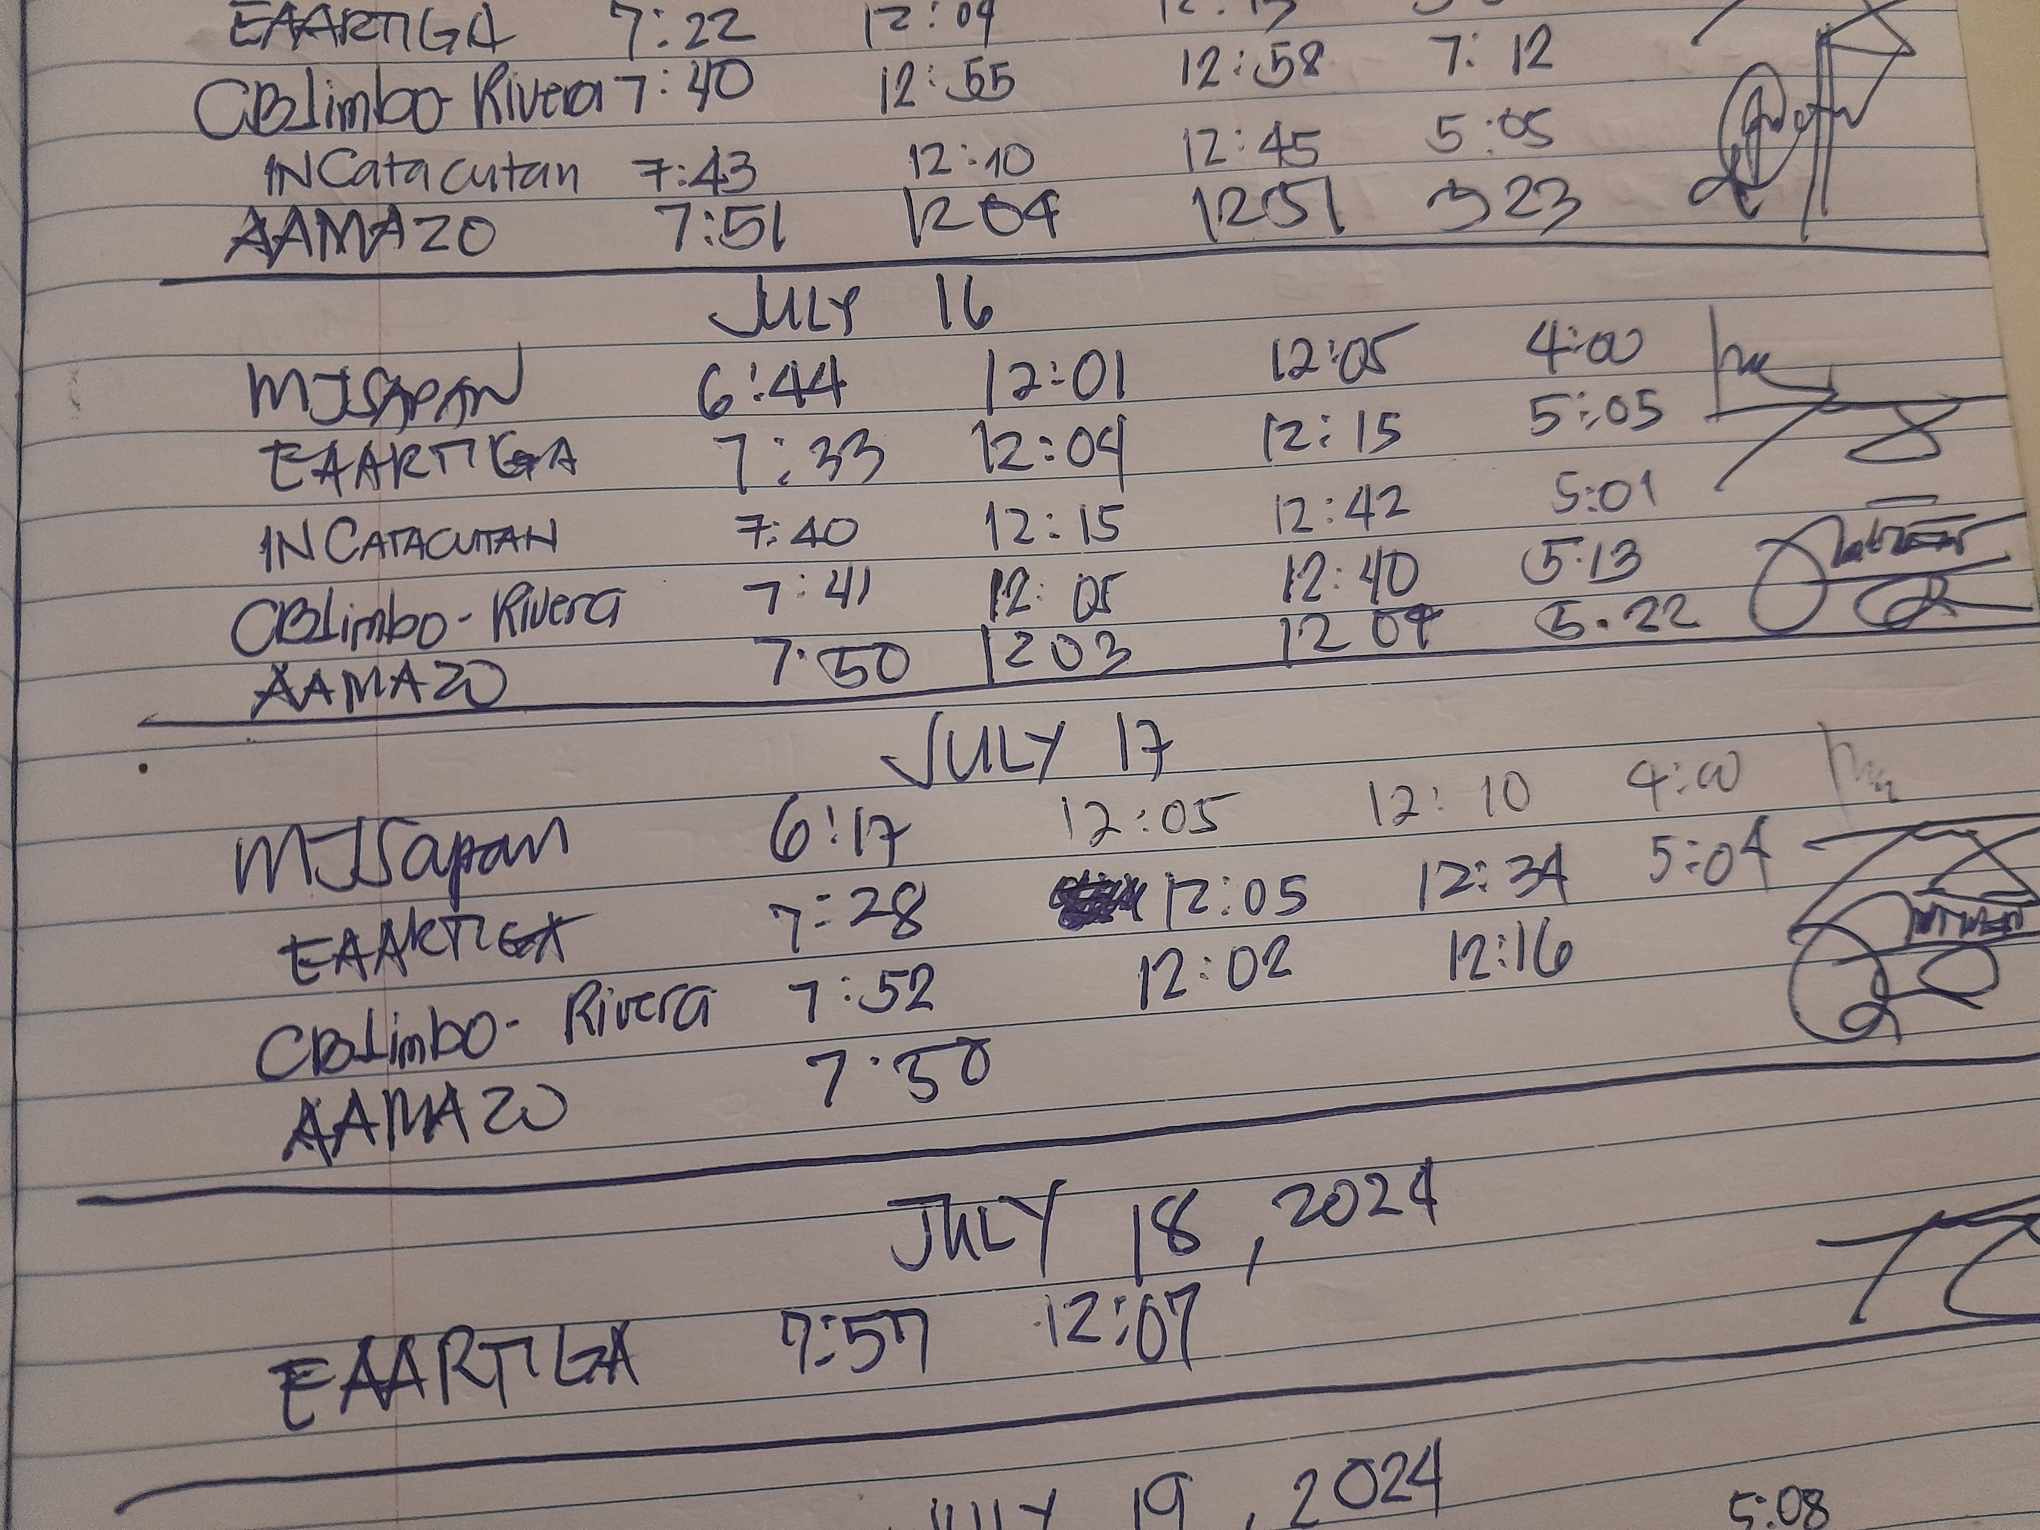 EAARTIGA 7:22 12:04
CBLimbo-Rivera 7:40 12:55 12:58 7:12
INCatacutan 7:43 12:10 12:45 5:05
AAMAZO 7:51 1204 1251 523
JULY 16
MJSAPAN 6:44 12:01 12:05 4:00
EAARTIGA 7:33 12:04 12:15 5:05
INCATACUTAN 7:40 12:15 12:42 5:01
CBLimbo-Rivera 7:41 12:05 12:40 5:13
AAMAZO 7:50 1203 1204 5.22
JULY 17
MJSapan 6:17 12:05 12:10 4:00
EAARTIGA 7:28 12:05 12:34 5:04
CBLimbo-Rivera 7:52 12:02 12:16
AAMAZO 7:50
JULY 18, 2024
EAARTIGA 7:57 12:07
JULY 19, 2024
5:08